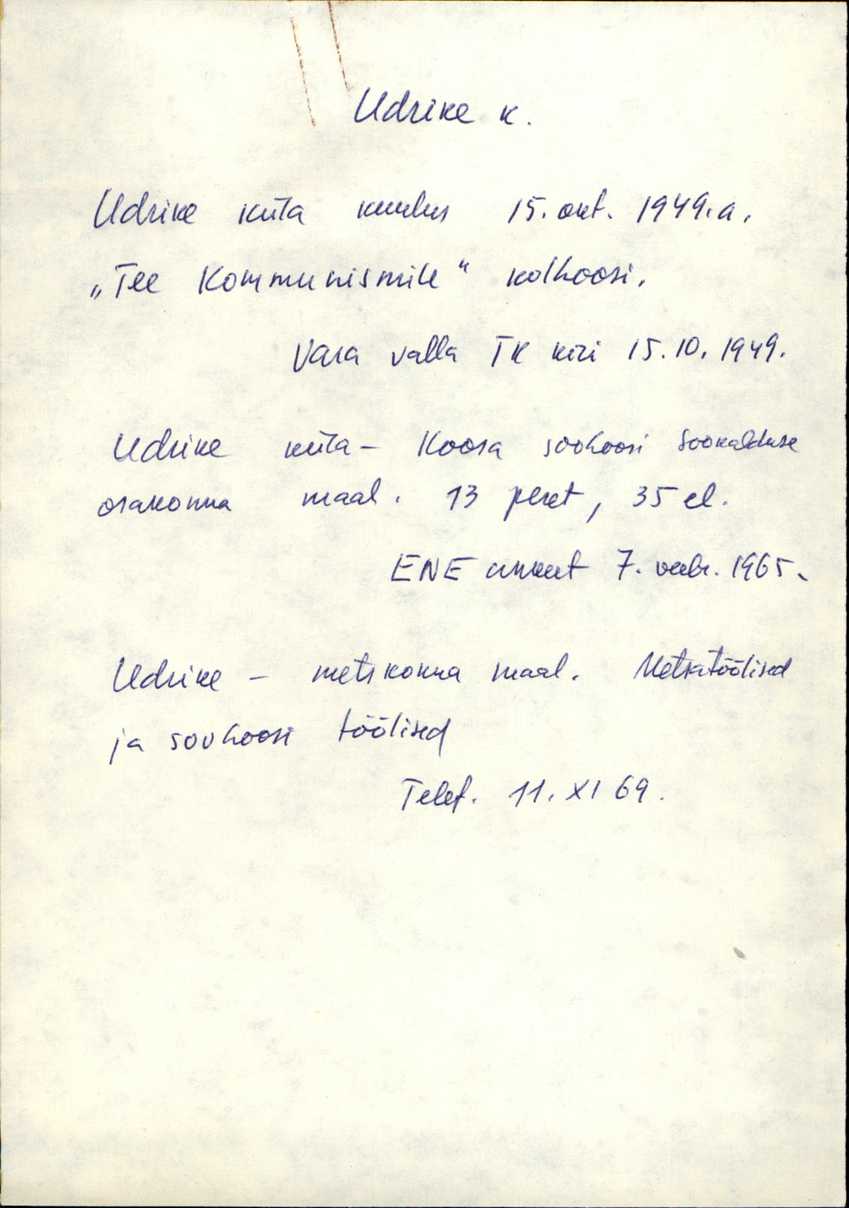 Udrike k.
Udrike küla kuulus 15. okt. 1949.a.
„Tee Kommunismile" kolhoosi.
Vara valla TK kiri 15.10.1949.
Udrike küla - Koosa sovhoosi Sookalduse
osakonna maal. 13 peret, 35 el.
ENE ankeet 7. veebr. 1965.
Udrike - metskonna maal. Metsatöölised
ja sovhoosi töölised
Telef. 11. XI 69.